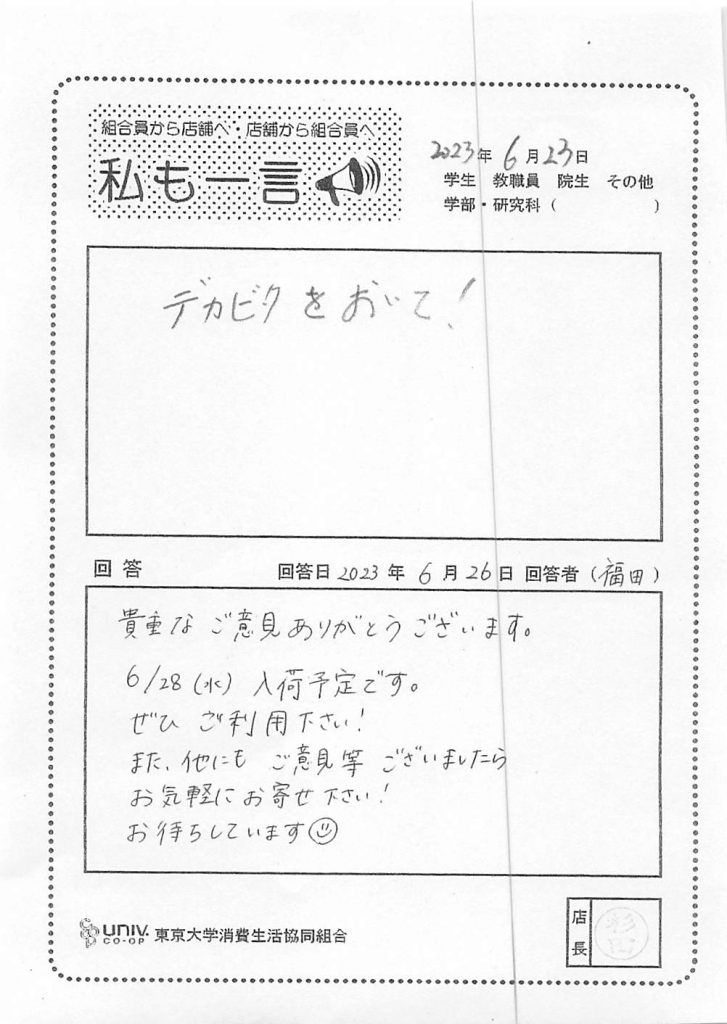 組合員から店舗へ・店舗から組合員へ
私も一言
2023年 6月23日
学生 教職員 院生 その他
学部・研究科（ ）
デカビクをおいて!
回答 回答日 2023年 6月 26日 回答者（福田）
貴重なご意見ありがとうございます。
6/28(水) 入荷予定です。
ぜひ ご利用下さい!
また、他にも ご意見等 ございましたら
お気軽にお寄せ下さい!
お待ちしています☺
UNIV. CO-OP 東京大学消費生活協同組合
店長 杉田